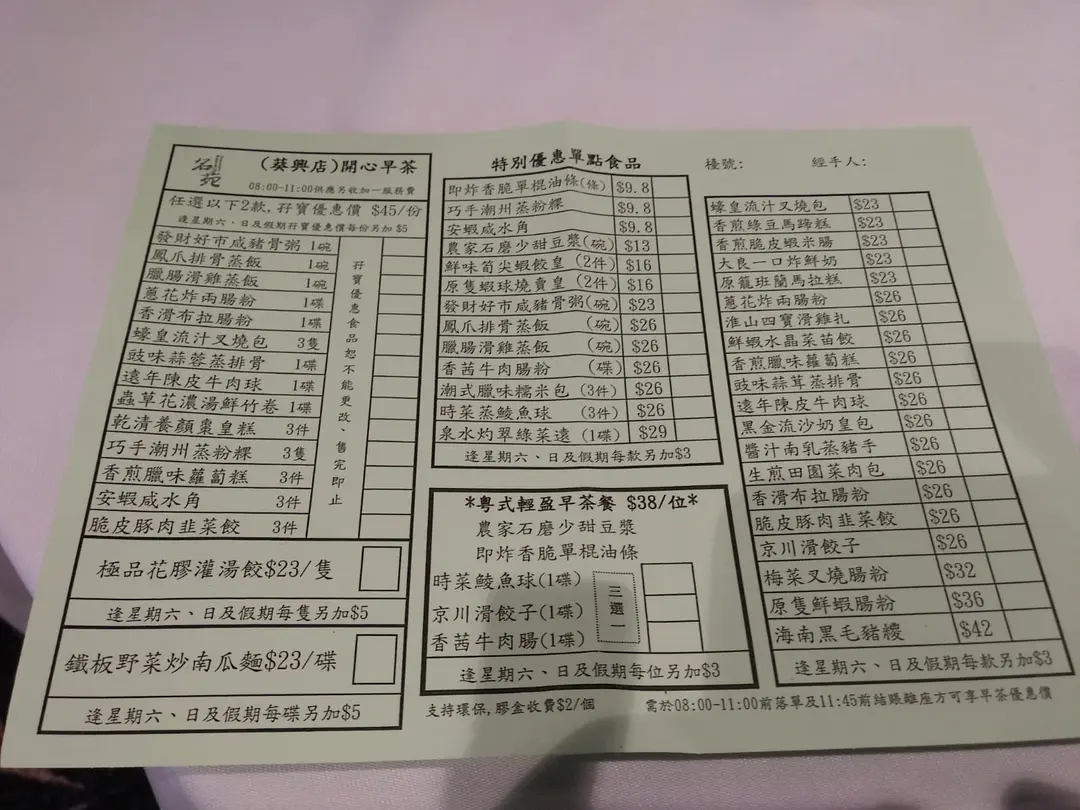 名苑
(葵興店)開心早茶
08:00-11:00供應另收加一服務費
任選以下2款,孖寶優惠價 $45/份
逢星期六、日及假期孖寶優惠價每份另加$5
發財好市咸豬骨粥 1碗
鳳爪排骨蒸飯 1碗
臘腸滑雞蒸飯 1碗
蔥花炸兩腸粉 1碟
香滑布拉腸粉 1碟
蠔皇流汁叉燒包 3隻
豉味蒜蓉蒸排骨 1碟
遠年陳皮牛肉球 1碟
蟲草花濃湯鮮竹卷 1碟
乾清養顏棗皇糕 3件
巧手潮州蒸粉粿 3隻
香煎臘味蘿蔔糕 3件
安蝦咸水角 3件
脆皮豚肉韭菜餃 3件
孖寶優惠食品恕不能更改、售完即止
極品花膠灌湯餃$23/隻
逢星期六、日及假期每隻另加$5
鐵板野菜炒南瓜麵$23/碟
逢星期六、日及假期每碟另加$5
特別優惠單點食品
即炸香脆單棍油條(條) $9.8
巧手潮州蒸粉粿 $9.8
安蝦咸水角 $9.8
農家石磨少甜豆漿(碗) $13
鮮味筍尖蝦餃皇 (2件) $16
原隻蝦球燒賣皇 (2件) $16
發財好市咸豬骨粥(碗) $23
鳳爪排骨蒸飯 (碗) $26
臘腸滑雞蒸飯 (碗) $26
香茜牛肉腸粉 (碟) $26
潮式臘味糯米包 (3件) $26
時菜蒸鯪魚球 (3件) $26
泉水灼翠綠菜遠 (1碟) $29
逢星期六、日及假期每款另加$3
*粵式輕盈早茶餐 $38/位*
農家石磨少甜豆漿
即炸香脆單棍油條
時菜鯪魚球(1碟)
京川滑餃子(1碟)
香茜牛肉腸(1碟)
三選一
逢星期六、日及假期每位另加$3
支持環保,膠盒收費$2/個
檯號: 經手人:
蠔皇流汁叉燒包 $23
香煎綠豆馬蹄糕 $23
香煎脆皮蝦米腸 $23
大良一口炸鮮奶 $23
原籠班蘭馬拉糕 $23
蔥花炸兩腸粉 $26
淮山四寶滑雞扎 $26
鮮蝦水晶菜苗餃 $26
香煎臘味蘿蔔糕 $26
豉味蒜茸蒸排骨 $26
遠年陳皮牛肉球 $26
黑金流沙奶皇包 $26
醬汁南乳蒸豬手 $26
生煎田園菜肉包 $26
香滑布拉腸粉 $26
脆皮豚肉韭菜餃 $26
京川滑餃子 $26
梅菜叉燒腸粉 $32
原隻鮮蝦腸粉 $36
海南黑毛豬糉 $42
逢星期六、日及假期每款另加$3
需於08:00-11:00前落單及11:45前結賬離座方可享早茶優惠價